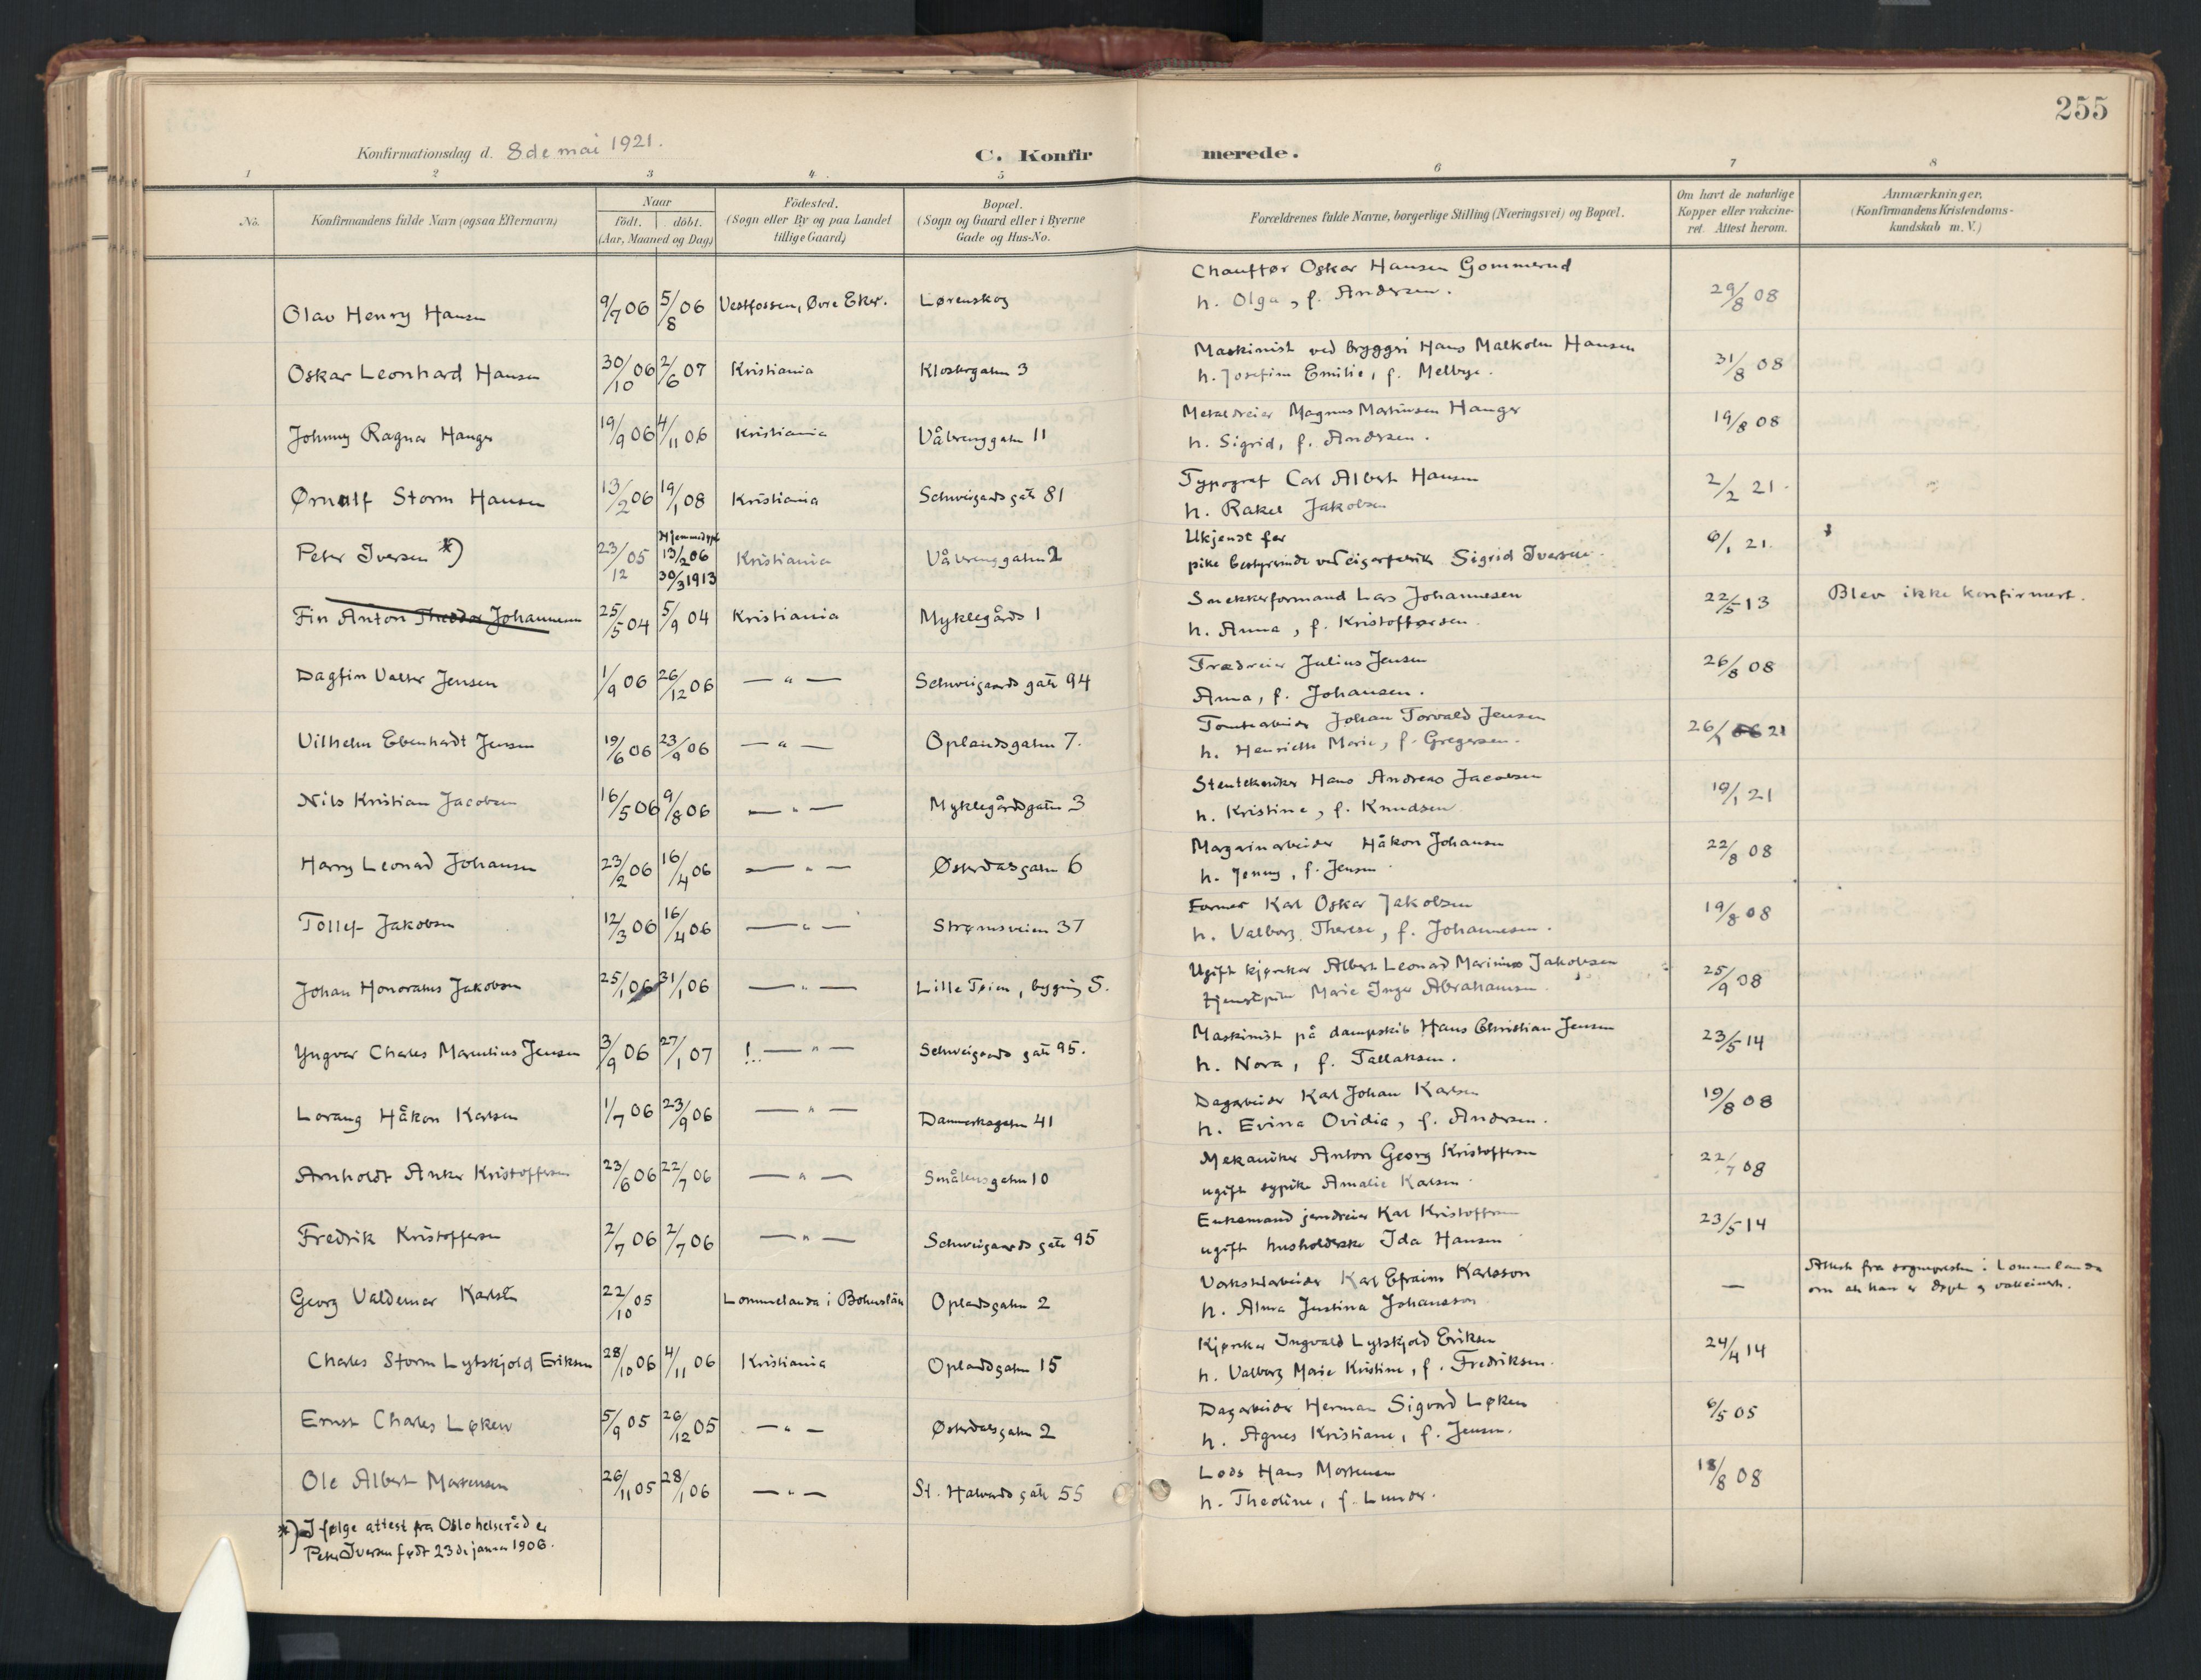 255
Konfirmationsdag d. 8de mai 1921.
C. Konfirmerede.
1 2 3 4 5 6 7 8
No.
Konfirmandens fulde Navn (ogsaa Efternavn)
Naar
födt. döbt.
(Aar, Maaned og Dag)
Födested.
(Sogn eller By og paa Landet
tillige Gaard)
Bopæl.
(Sogn og Gaard eller i Byerne
Gade og Hus-No.
Forældrenes fulde Navne, borgerlige Stilling (Næringsvei) og Bopæl.
Om havt de naturlige
Kopper eller vakcine-
ret. Attest herom.
Anmærkninger.
(Konfirmandens Kristendoms-
kundskab m. V.)
Olav Henry Hansen 9/7 06 5/8 06 Vestfossen, Øvre Eker. Lørenskog
Chauffør Oskar Hansen Gommerud
h. Olga, f. Andersen. 29/8 08
Oskar Leonhard Hansen 30/10 06 2/6 07 Kristiania Klostergaten 3
Maskinist ved bryggri Hans Malkolm Hansen
h. Josefine Emilie, f. Melbye. 31/8 08
Johnny Ragnar Hanger 19/9 06 4/11 06 Kristiania Vålerenggaten 11
Metaldreier Magnus Martinsen Hanger
h. Sigrid, f. Andersen. 19/8 08
Ørnulf Storm Hansen 13/2 06 19/1 08 Kristiania Schweigaards gate 81
Typograf Carl Albert Hansen
h. Rakel Jakobsen 2/2 21.
Peter Iversen *) 23/12 05 Hjemmedøpt 13/2 06 30/3 1913 Kristiania Vålerenggaten 2
Ukjendt far
pike bestyrerinde ved cigarfabrik Sigrid Iversen. 6/1 21.
Fin Anton Theodor Johannesen 25/5 04 5/9 04 Kristiania Myklegårds 1
Snekkerformand Lars Johannesen
h. Anna, f. Kristoffersen. 22/5 13 Blev ikke konfirmert.
Dagfin Valter Jensen 1/9 06 26/12 06 — " — Schweigaards gate 94
Trædreier Julius Jensen
Anna, f. Johansen. 26/8 08
Vilhelm Ebenhardt Jensen 19/6 06 23/9 06 — " — Oplandsgaten 7.
Tomtearbeider Johan Torvald Jensen
h. Henriette Marie, f. Gregersen. 26/1 21
Nils Kristian Jacobsen 16/5 06 9/8 06 — " — Myklegårdsgaten 3
Stentekniker Hans Andreas Jacobsen
h. Kristine, f. Knudsen 19/1 21
Harry Leonard Johansen 23/2 06 16/4 06 — " — Østerdalsgaten 6
Margarinarbeider Håkon Johansen
h. Jenny, f. Jensen 22/8 08
Tollef Jakobsen 12/3 06 16/4 06 — " — Strømsveien 37
Former Karl Oskar Jakobsen
h. Valborg Therese, f. Johannesen. 19/8 08
Johan Honoratus Jakobsen 25/1 06 31/1 06 — " — Lille Tøien, bygning S.
Ugift kjørekar Albert Leonard Marinius Jakobsen
tjenestepike Marie Inger Abrahamsen. 25/9 08
Yngvar Charles Marentius Jensen 3/9 06 27/1 07 — " — Schweigaards gate 95.
Maskinist på dampskib Hans Christian Jensen
h. Nora, f. Tallaksen. 23/5 14
Lorang Håkon Karlsen 1/7 06 23/9 06 — " — Danmarksgaten 41
Dagarbeider Karl Johan Karlsen
h. Evina Ovidia, f. Andersen. 19/8 08
Arnholdt Anker Kristoffersen 23/6 06 22/7 06 — " — Smålensgaten 10
Mekaniker Anton Georg Kristoffersen
ugift sypike Amalie Karlsen. 22/7 08
Fredrik Kristoffersen 2/7 06 2/7 06 — " — Schweigaards gate 95
Enkemand jerndreier Karl Kristoffersen
ugift husholderske Ida Hansen 23/5 14
Georg Valdemar Karlsen 22/10 05 Lommelanda i Bohuslän Oplandsgaten 2
Verkstedarbeider Karl Efraim Karlsson
h. Alma Justina Johansson —
Attest fra sogneprestn i Lommelanda
om at han er døpt og vakcinert.
Charles Storm Lytskjold Eriksen 28/10 06 4/11 06 Kristiania Oplandsgaten 15
Kjørekar Ingvald Lytskjold Eriksen
h. Valborg Marie Kristine, f. Fredriksen. 24/4 14
Ernst Charles Løken 5/9 05 26/12 05 — " — Østerdalsgaten 2
Dagarbeider Herman Sigvard Løken
h. Agnes Kristiane, f. Jensen. 6/5 05
Ole Albert Martensen 26/11 05 28/1 06 — " — St. Halvards gate 55
Lods Hans Mortensen
h. Theoline, f. Lunder. 18/8 08
*) I følge attest fra Oslo helseråd er
Peter Iversen født 23de januar 1906.